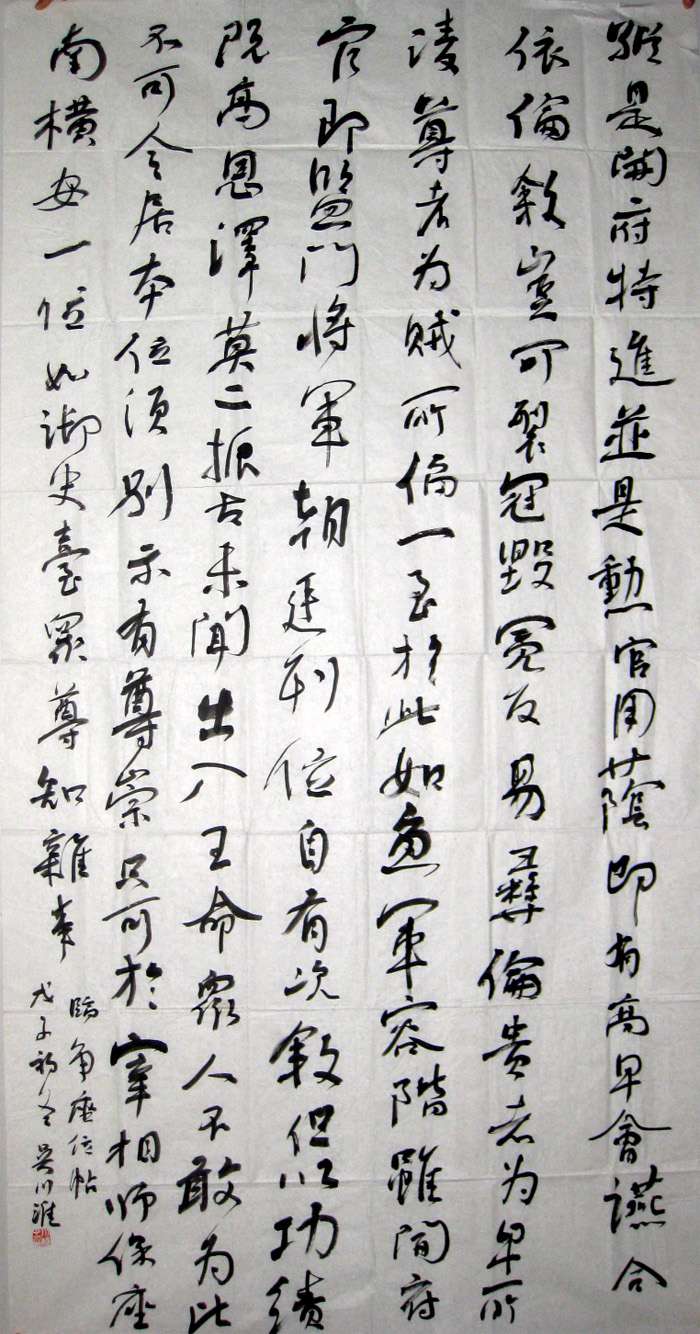 縱是開府特進並是勲官用蔭即有高卑會讌合
依倫敘豈可裂冠毀冕反易彝倫貴者为卑所
凌尊者为賊所偪一至於此如魚軍容階雖開府
官即監門將軍朝廷列位自有次敘但以功績
既高恩澤莫二振古未聞出入王命眾人不敢为此
不可令居本位須別示有尊崇只可於宰相師保座
南橫安一位如御史臺眾尊知雜事
臨爭座位帖
戊子初冬 吳川淮